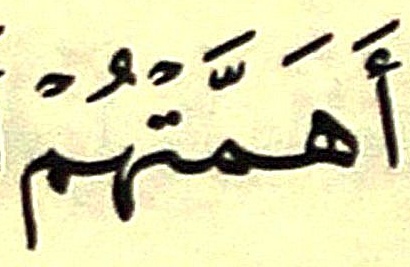 أَهَمَّتْهُمْ